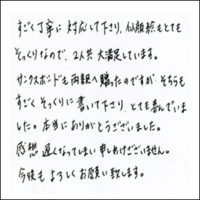 すごく丁寧に対応して下さり、似顔絵もとても
そっくりなので、2人共大満足しています。
サンクスボードも両親へ贈ったのですが、そちらも
すごくそっくりに書いて下さり、とても喜んでいま
した。本当にありがとうございました。
感想遅くなってしまい申し訳ございません。
今後もよろしくお願い致します。